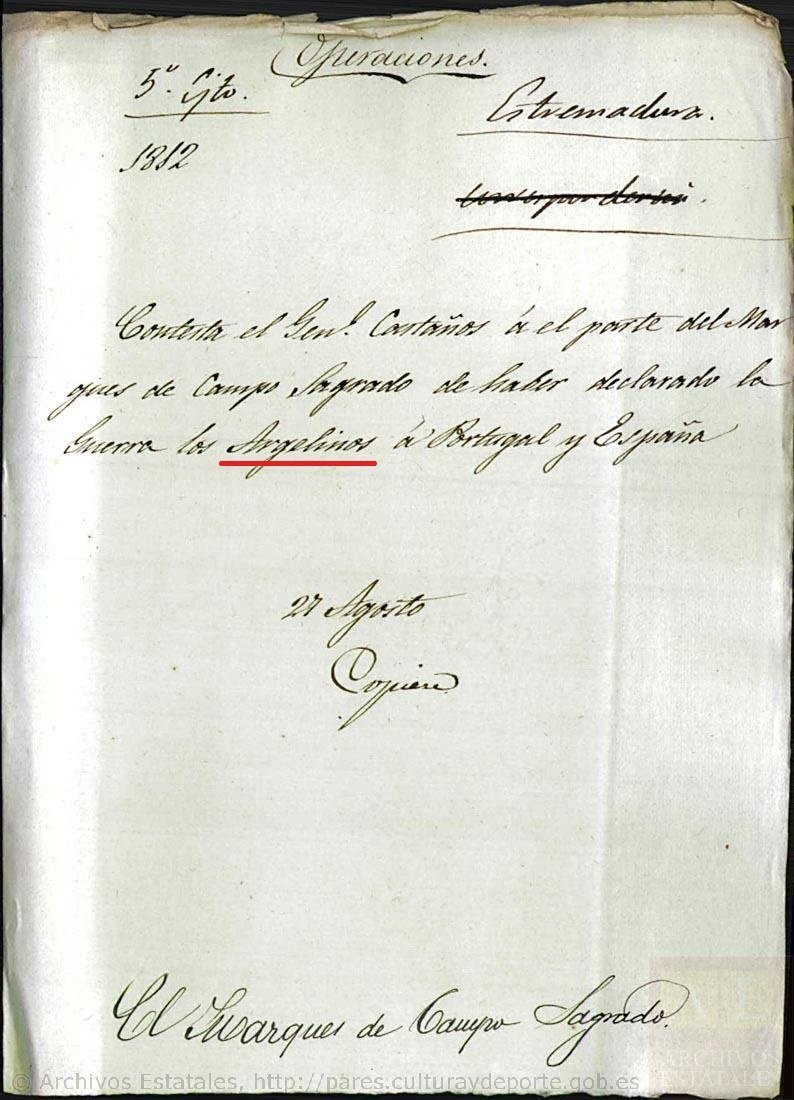 Operaciones.
5º. Ejto.
Estremadura.
1812
Contesta el Genl. Castaños á el parte del Mar
ques de Campo Sagrado de haber declarado la
Guerra los Argelinos á Portugal y España
27 Agosto
Copiese
El Marques de Campo Sagrado.
© Archivos Estatales, http://pares.culturaydeporte.gob.es
ARCHIVOS
ESTATALES